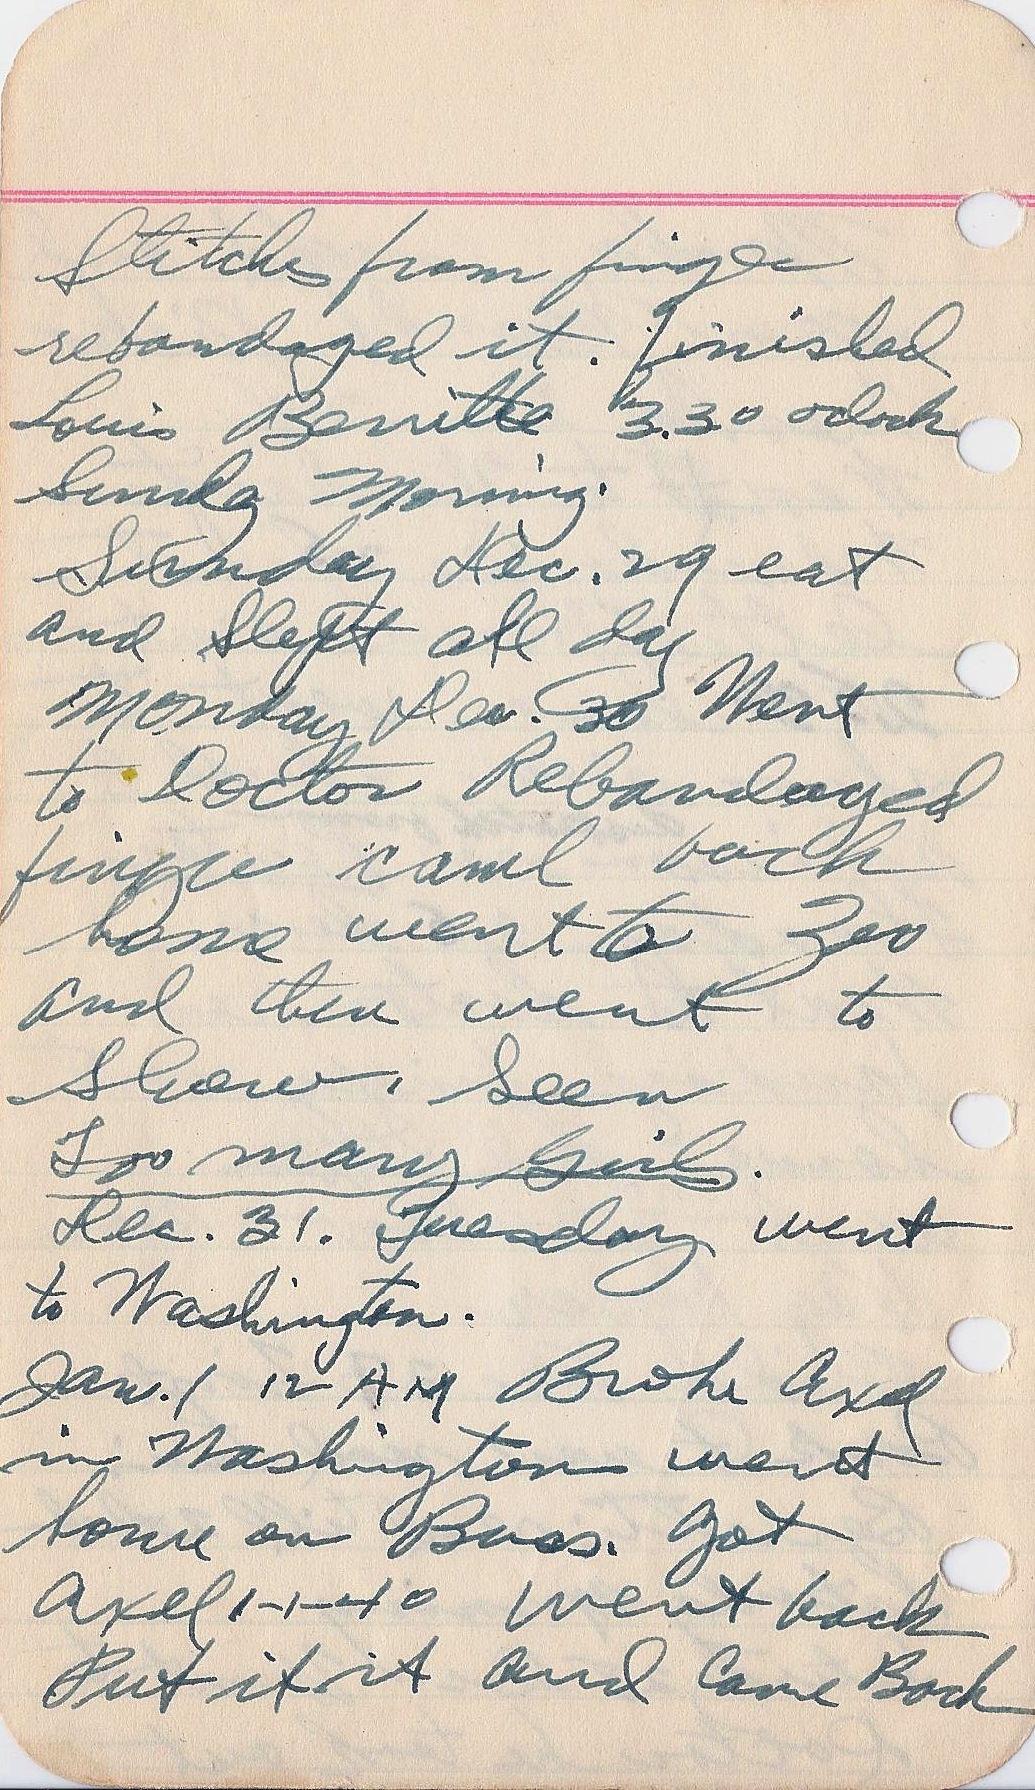 Stitches from finger
rebandaged it. finished
Louis Berrette 3.30 oclock
Sunday Morning.
Sunday Dec. 29 eat
and Slept all day
Monday Dec. 30 Went
to Doctor Rebandaged
finger came back
home went to Zoo
and then went to
Show. Seen
Too many Girls.
Dec. 31. Tuesday went
to Washington.
Jan. 1 12 AM Broke Axel
in Washington went
home on Buss. Got
Axel 1-1-40 went back
Put it it and Came Back